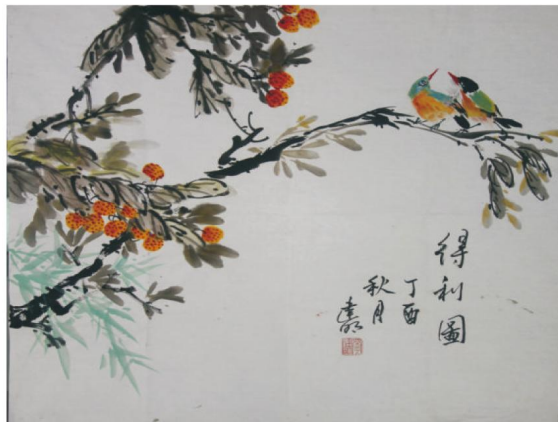 得利圖
丁酉
秋月